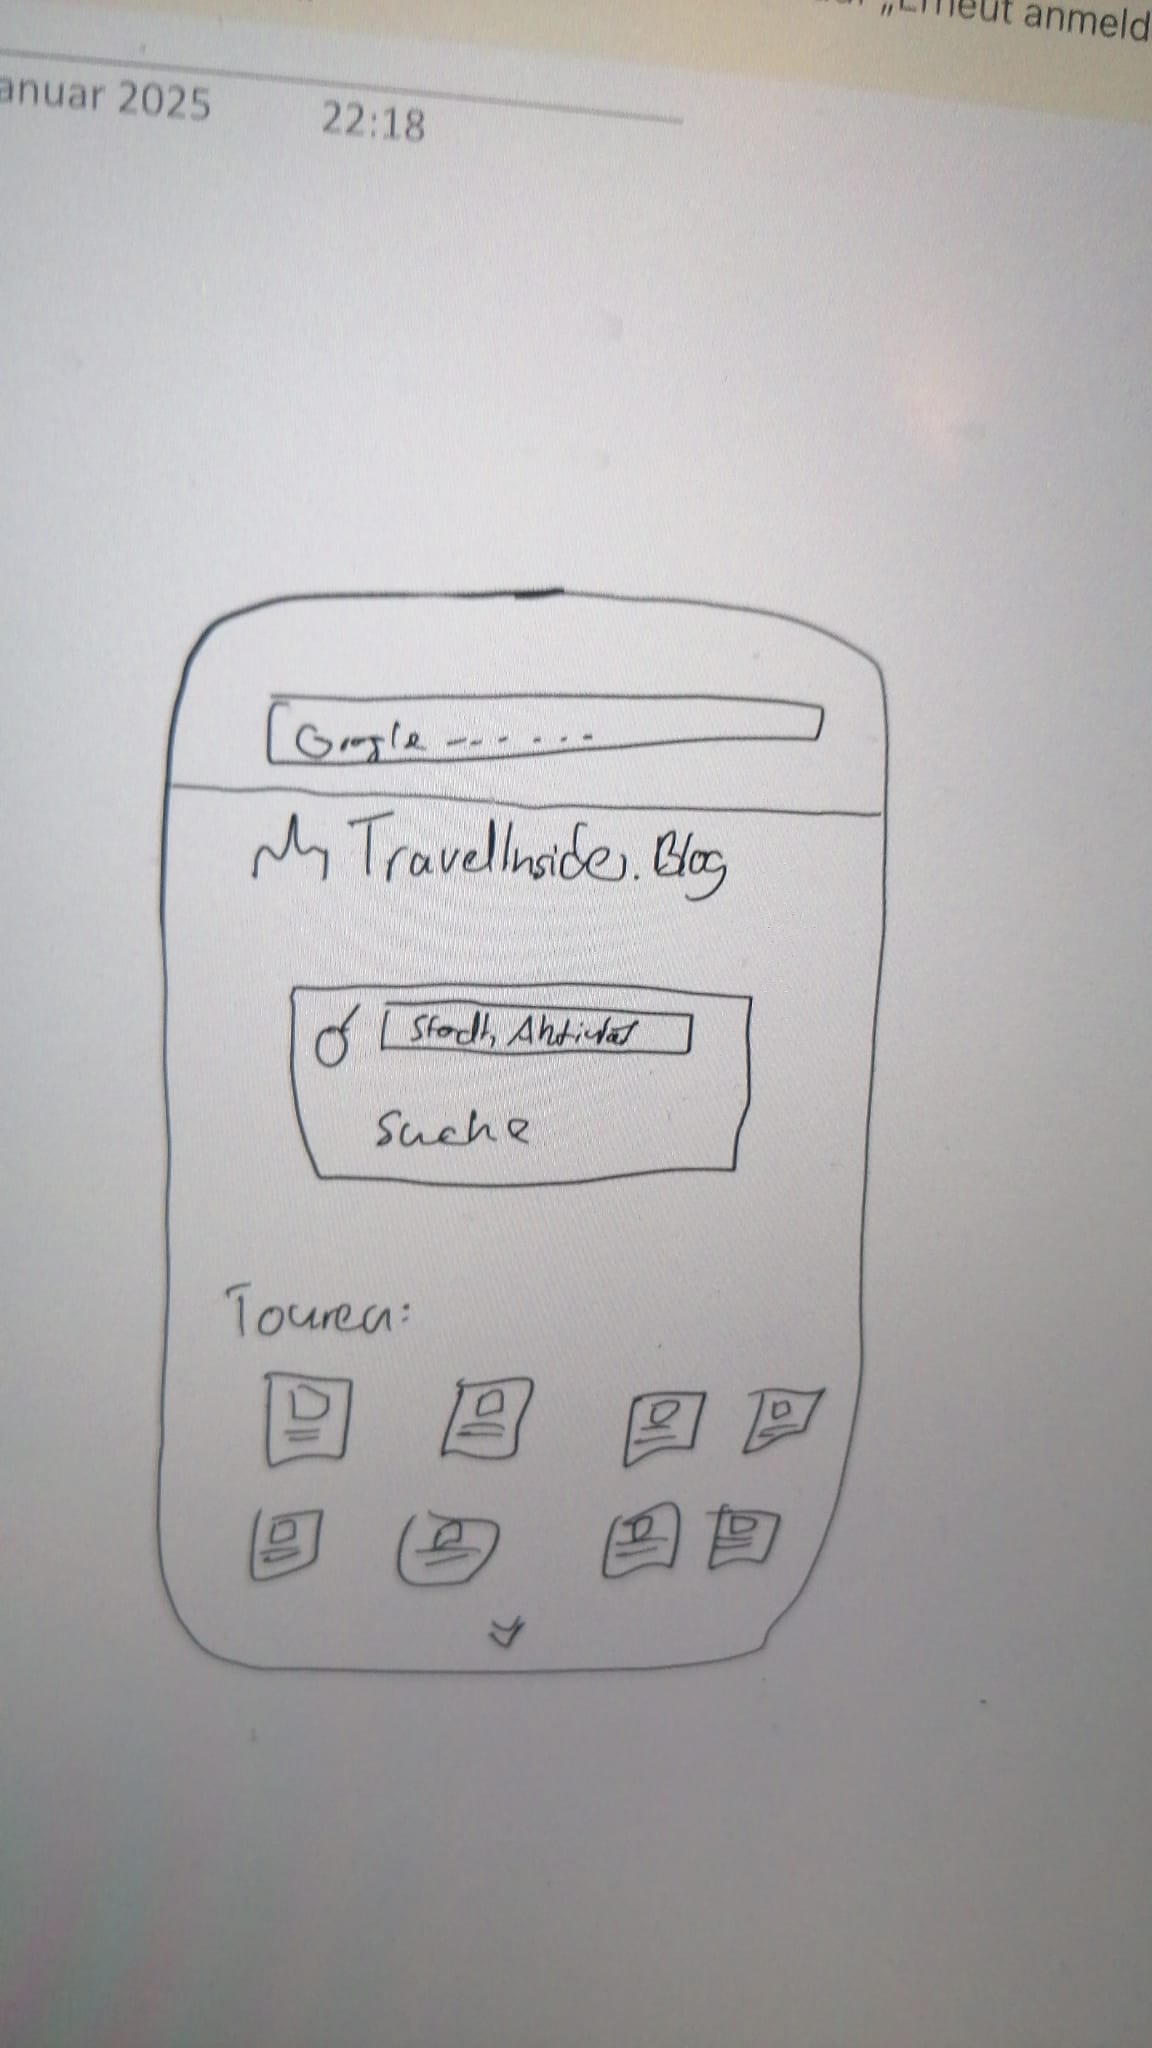 „Erneut anmeld
anuar 2025 22:18
Google ------
My TravelInside.Blog
Stadt, Aktivität
Suche
Touren: